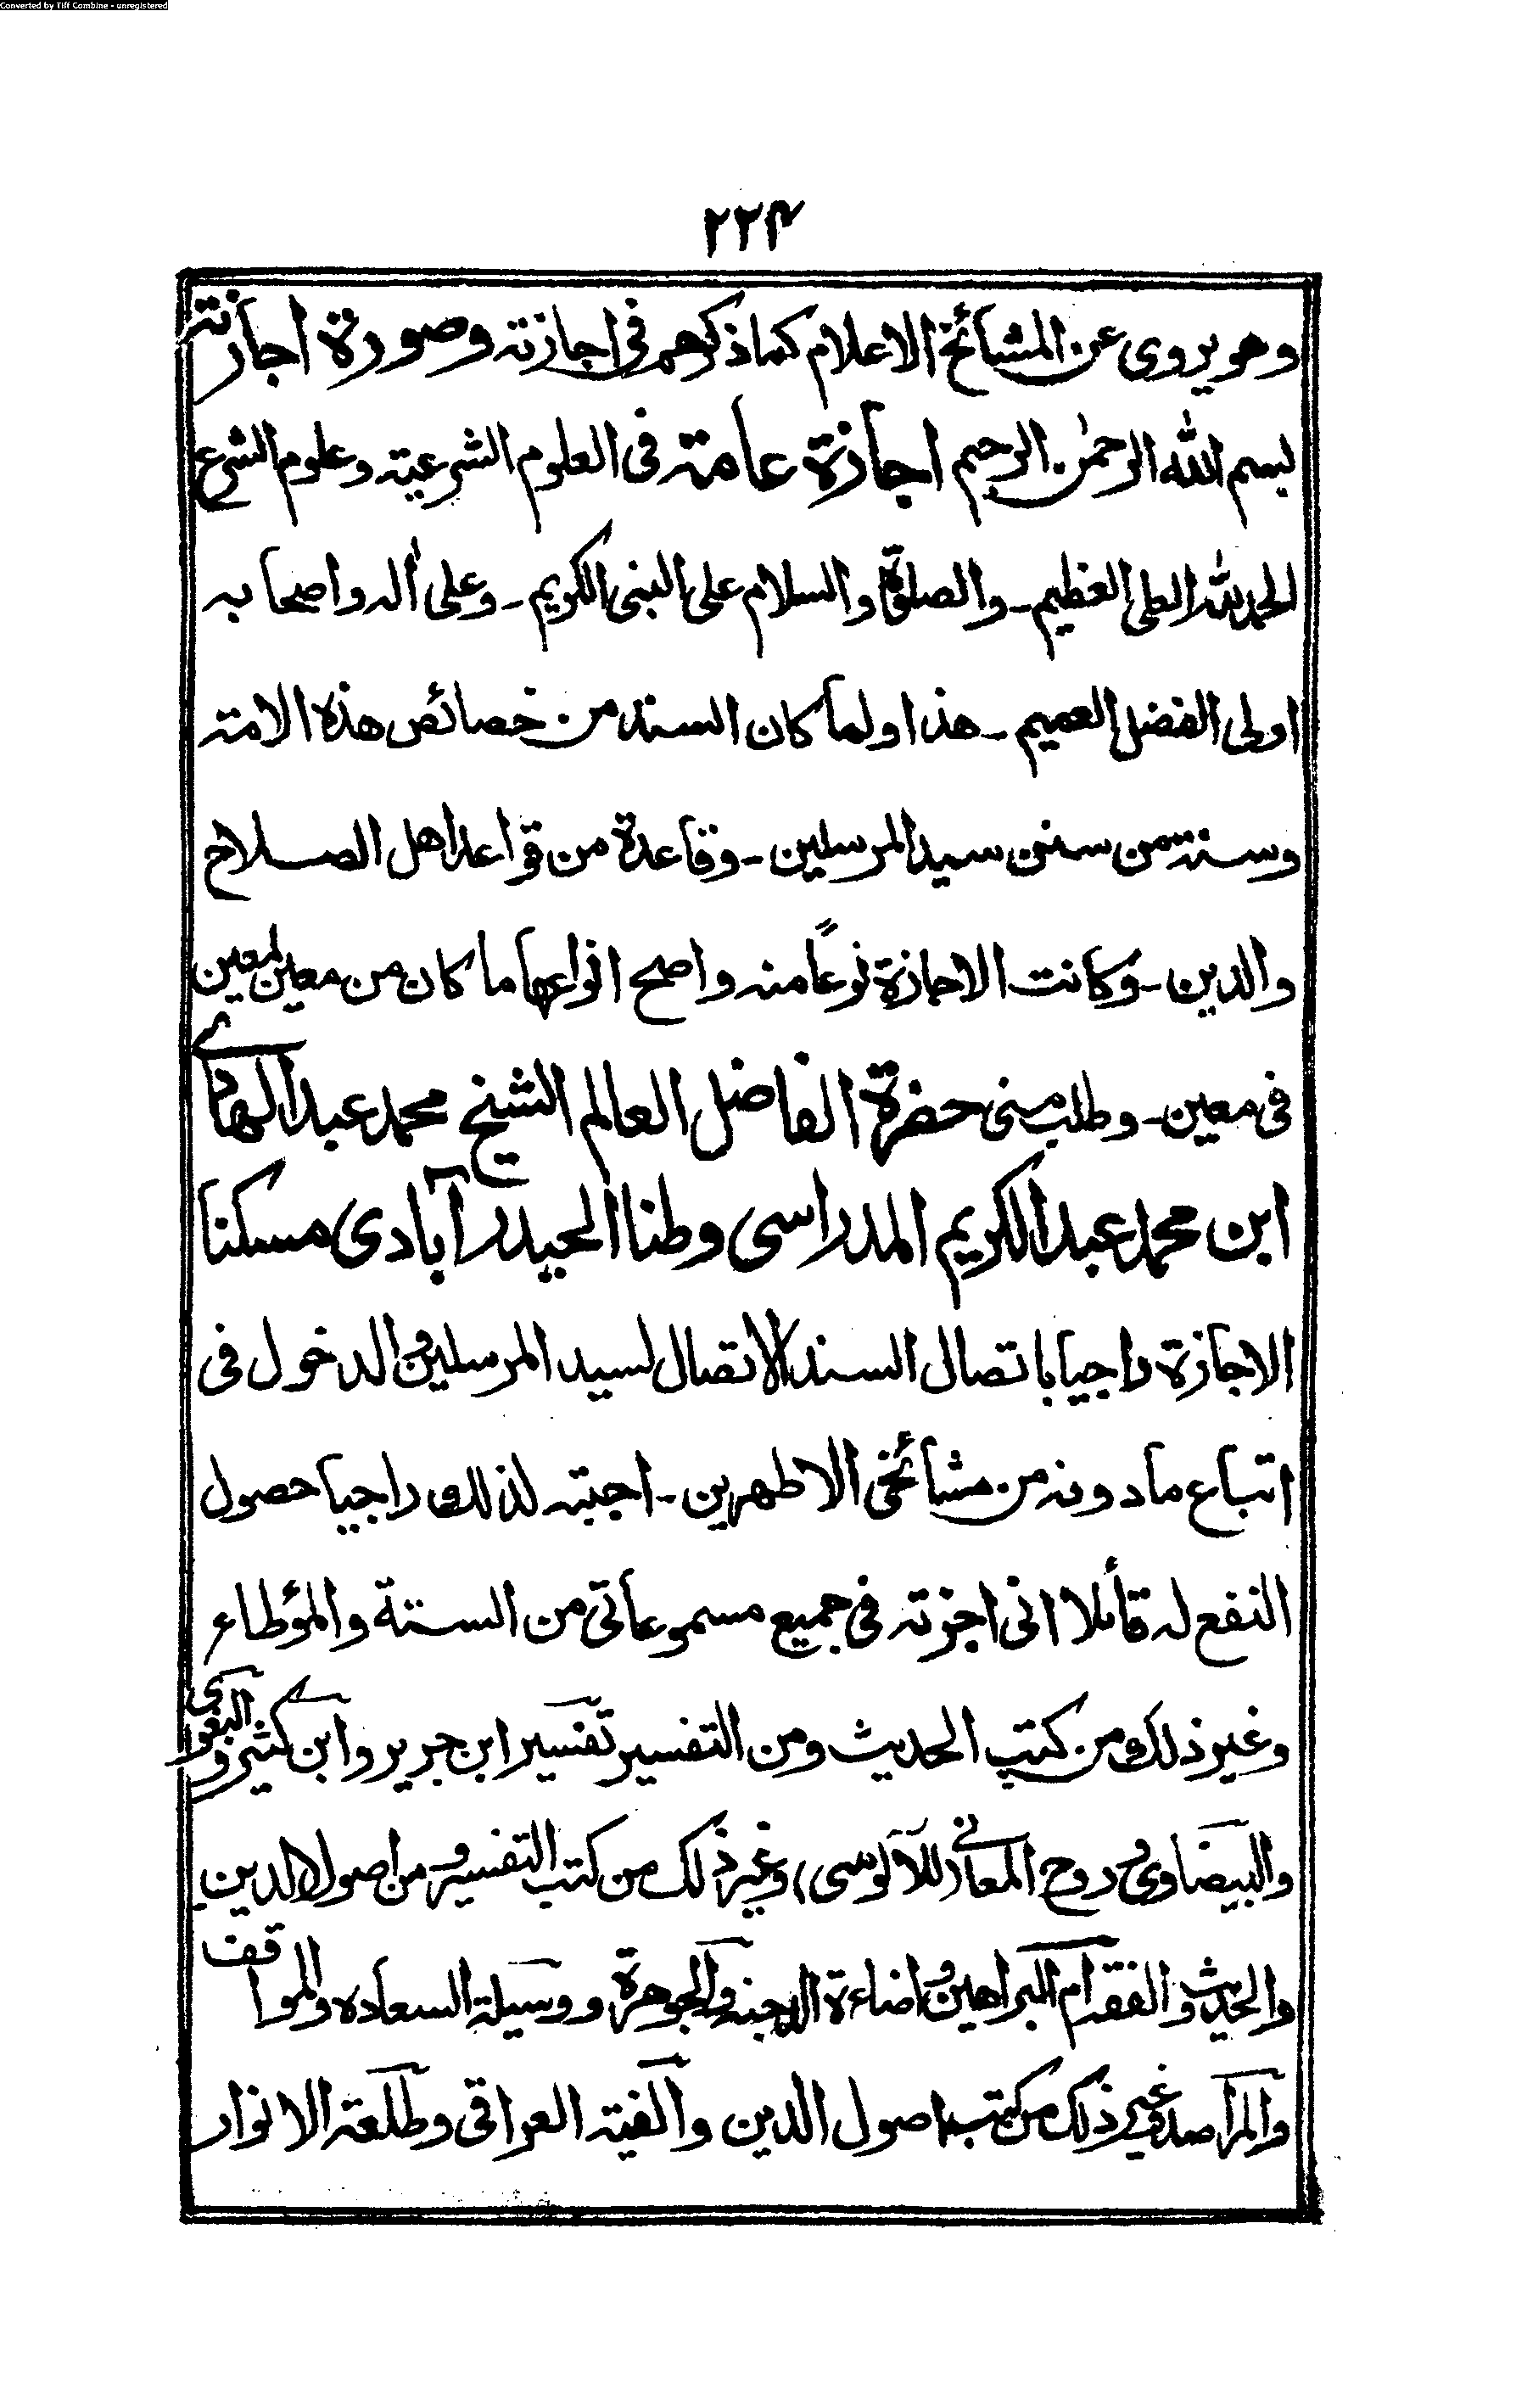 Converted by Tiff Combine - unregistered
٢٢٤
وهو يروى عن المشائخ الاعلام كما ذكرهم فى اجازته وصورة اجازته
بسم الله الرحمٰن الرحيم اجازة عامة فى العلوم الشرعية وعلوم الشرع
الحمد لله العلى العظيم ـ والصلوٰة والسلام على النبى الكريم ـ وعلى أله واصحابه
اولى الفضل العميم ـ هذا ولما كان السند من خصائص هذه الامة
وسنة من سنن سيد المرسلين ـ وقاعدة من قواعد اهل الصلاح
والدين ـ وكانت الاجازة نوعًا منه واصح انواعها ما كان من معين لمعين
فى معين ـ وطلب منى حضرة الفاضل العالم الشيخ محمد عبد الهادى
ابن محمد عبد الكريم المدراسى وطنا الحيدرآبادى مسكنا
الاجازة راجيا باتصال السند الاتصال لسيد المرسلين والدخول فى
اتباع مادونه من مشائخى الاطهرين ـ اجبته لذلك راجيا حصول
النفع له قائلا انى اجزته فى جميع مسموعاتى من السنة والمؤطاء
وغير ذلك من كتب الحديث ومن التفسير تفسير ابن جرير وابن كثير والبغوى
والبيضاوى وروح المعانى (للآلوسى) وغير ذلك من كتب التفسير ومن اصول الدين
والحديث والفقه ام البراهين واضاءة الدجنه والجوهرة ووسيلة السعاده والمواقف
والمراصد وغير ذلك من كتب اصول الدين وألفية العراقى وطلعة الانوار